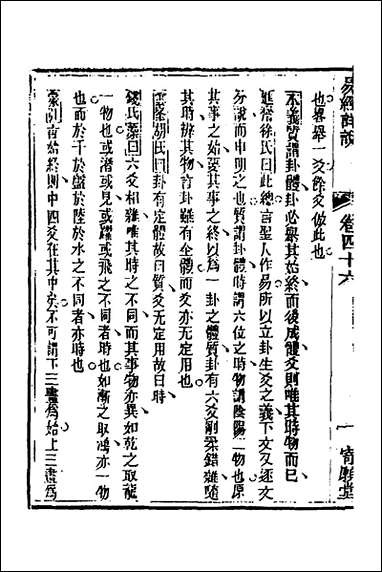 易經詳說
卷四十六
一
寄願堂
也畧舉一爻餘爻倣此也
本義質謂卦體卦必舉其始終而後成體爻則唯其時物而已
進齋徐氏曰此總言聖人作易所以立卦生爻之義下文又逐文
分說而申明之也質謂卦體時謂六位之時物謂陰陽二物也原
其事之始要其事之終以為一卦之體質卦有六爻剛柔錯雜隨
其時辨其物言卦雖有全體而爻亦无定用也
雲峯胡氏曰卦有定體故曰質爻无定用故曰時
錢氏藻曰六爻相雜唯其時之不同而其事物亦異如乾之取龍
一物也或潛或見或躍或飛之不同者時也如漸之取鴻亦一物
也而於干於盤於陸於水之不同者亦時也
蒙引言始終則中四爻在其中矣不可謂下三畫為始上三畫為